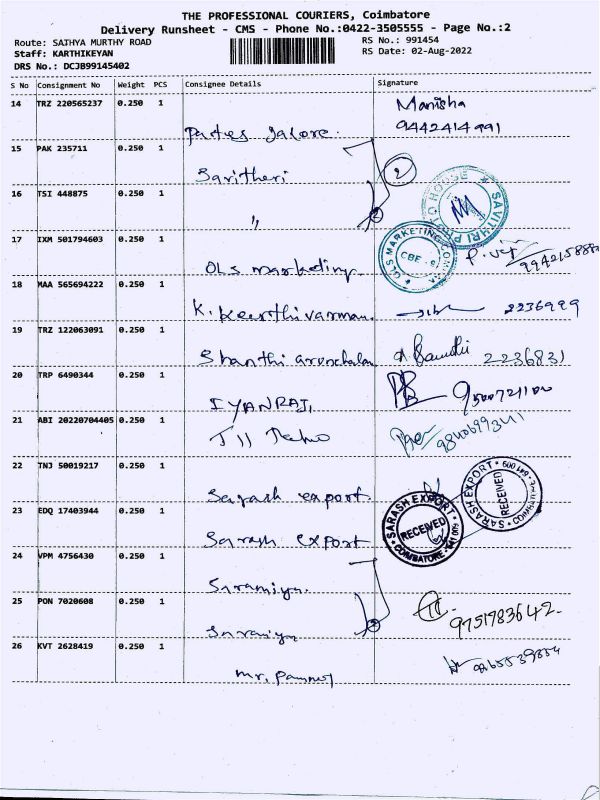 THE PROFESSIONAL COURIERS, Coimbatore
Delivery Runsheet - CMS - Phone No.:0422-3505555 - Page No.:2
Route: SATHYA MURTHY ROAD
RS No.: 991454
Staff: KARTHIKEYAN
RS Date: 02-Aug-2022
DRS No.: DCJB99145402
S No Consignment No Weight PCS Consignee Details Signature
14 TRZ 220565237 0.250 1 Manisha
9442414991
15 PAK 235711 0.250 1
Savitheri 2
16 TSI 448875 0.250 1
〃 2
SAVITHRI PHOTO HOUSE
17 IXM 501794603 0.250 1
OLS marketing
OLS MARKETING
CBE - 9
18 MAA 565694222 0.250 1
K. Keerthivarman 2236999
19 TRZ 122063091 0.250 1
Shanthi arunchalam 2236831
20 TRP 6490344 0.250 1
IYANRAJ,
21 ABI 20220704405 0.250 1
22 TNJ 50019217 0.250 1
Sarash export
SARASH EXPORT
RECEIVED
23 EDQ 17403944 0.250 1
Sarash export
SARASH EXPORT
RECEIVED
COIMBATORE - 641 009
24 VPM 4756430 0.250 1
25 PON 7020608 0.250 1 9751983642
26 KVT 2628419 0.250 1